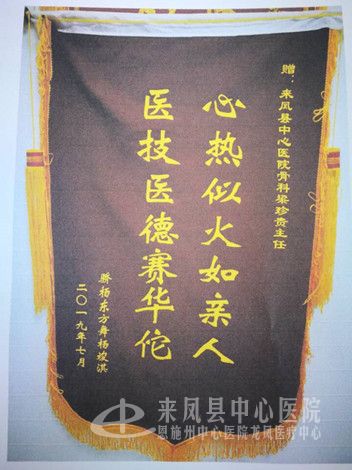 赠：来凤县中心医院骨科梁珍贵主任
心热似火如亲人
医技医德赛华佗
骄杨东方舞杨竣淇
二〇一九年七月
来凤县中心医院
恩施州中心医院龙凤医疗中心